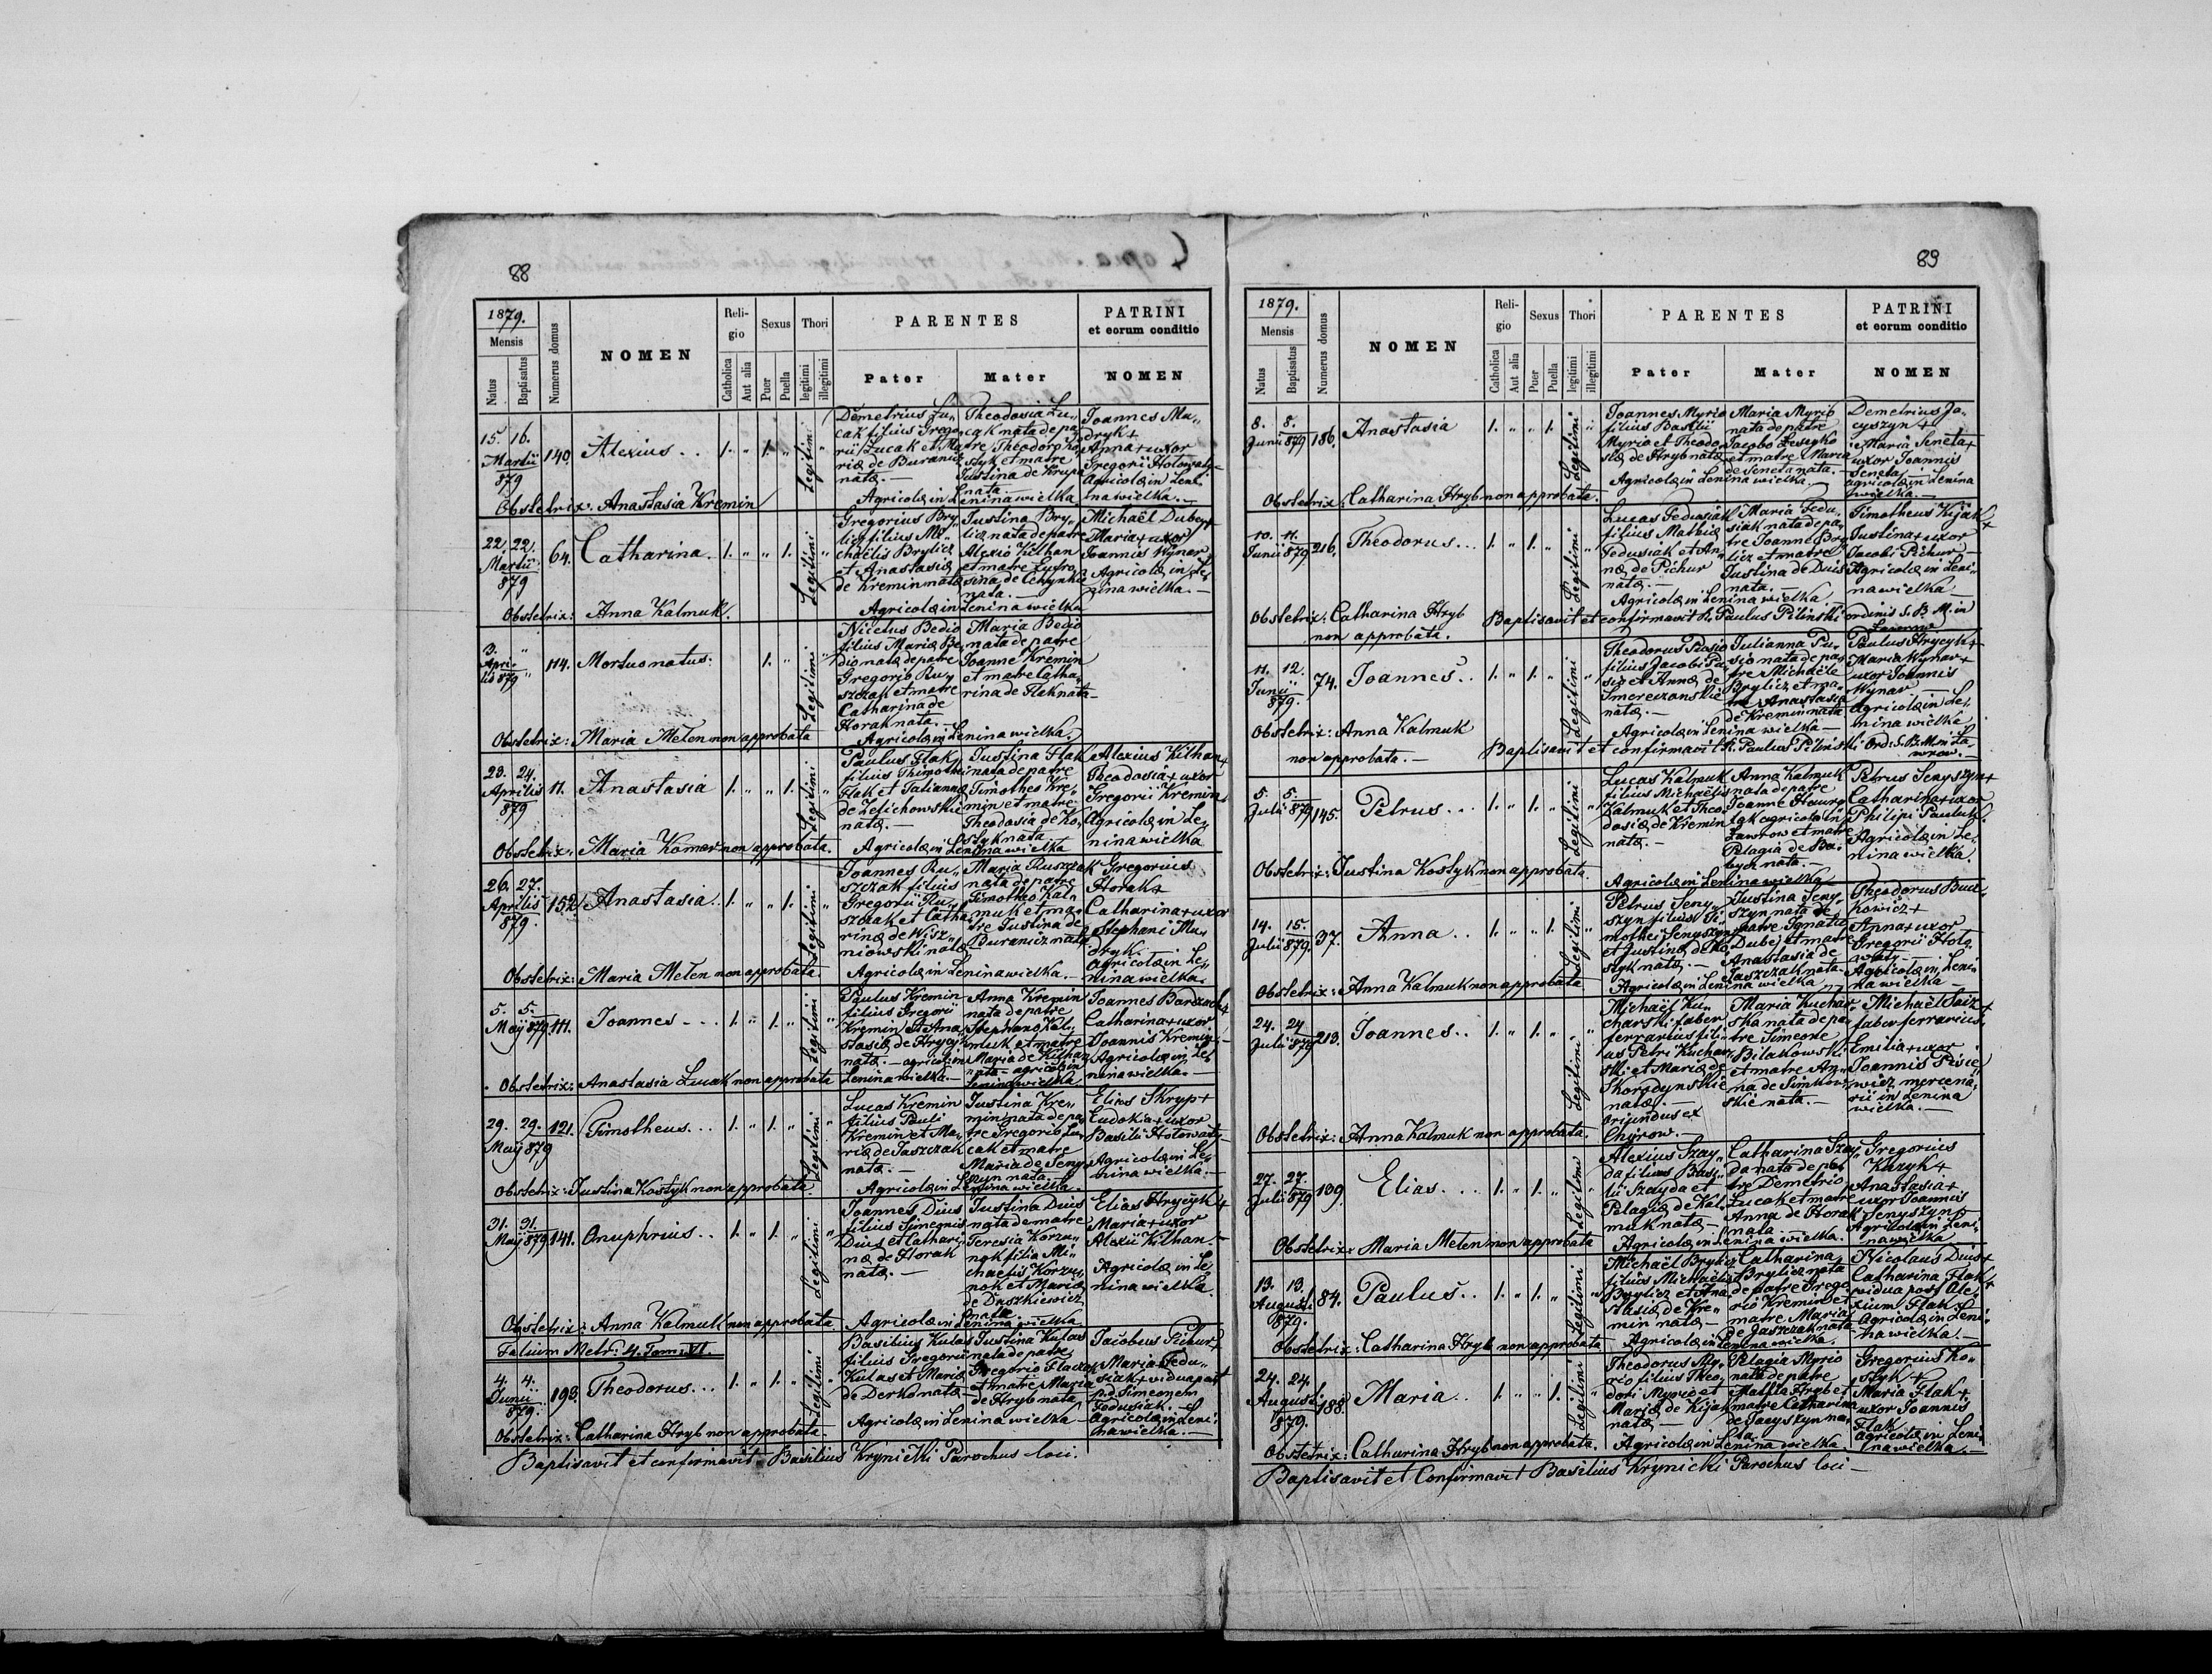 88
1879.
Mensis
Natus
Baptisatus
Numerus domus
NOMEN
Reli-
gio
Catholica
Aut alia
Sexus
Puer
Puella
Thori
legitimi
illegitimi
PARENTES
Pater
Mater
PATRINI
et eorum conditio
NOMEN
15. 16.
Martii
879
140.
Alexius . .
1. " 1. "
Legitimi
Demetrius Lu„
cak filius Grego„
rii Lucak et Ma„
riæ de Buranicz
natæ. —
Theodosia Lu„
cak nata de pa„
tre Theodoro Ko„
styk et matre
Justina de Krupa
nata. —
Agricolæ in Lenina wielka
Joannes Mu„
dryk +
Anna + uxor
Gregorii Hołowaty —
Agricolæ in Leni„
na wielka. —
Obstetrix: Anastasia Kremin
22. 22.
Martii
879
64.
Catharina.
1. " " 1.
Legitimi
Gregorius Bry„
licz filius Mi„
chaëlis Brylicz
et Anastasiæ
de Kremin natæ
Justina Bry„
licz nata de patre
Alexio Kilhan
et matre Eufro„
sina de Lehynkie
nata. —
Agricolæ in Lenina wielka
Michaël Dubey +
Maria + uxor
Joannis Wynar —
Agricolæ in Le„
nina wielka. —
Obstetrix: Anna Kalmuk.
3.
Apri„
lis 879
114.
Mortuo natus:
1. "
Legitimi
Nicetus Bedio
filius Mariæ Be„
dio nata de patre
Gregorio Ru„
szczak et matre
Catharina de
Horak nata. —
Maria Bedio
nata de patre
Joanne Kremin
et matre Catha„
rina de Flek nata —
Agricolæ in Lenina wielka.
Obstetrix: Maria Meten non approbata
23. 24.
Aprilis
879
11.
Anastasia
1. " " 1.
Legitimi
Paulus Flak
filius Thimothei
Flak et Tatiannæ
de Zelichowskie
natæ. —
Justina Flak
nata de patre
Timotheo Kre„
min et matre
Theodosia de Ko„
styk nata
Agricolæ in Lenina wielka
Alexius Kilhan +
Theodosia + uxor
Gregorii Kremin
Agricolæ in Le„
nina wielka
Obstetrix: Maria Komar non approbata.
26. 27.
Aprilis
879.
152.
Anastasia.
1. " " 1.
Legitimi
Joannes Ru„
szczak filius
Gregorii Ru„
szczak et Catha„
rinæ de Wisz„
niowski natæ
Maria Ruszczak
nata de patre
Timotheo Kal„
muk et ma„
tre Justina de
Buranicz nata
Agricolæ in Lenina wielka. —
Gregorius
Horak +
Catharina + uxor
Stephani Mu„
dryk. —
Agricolæ in Le„
nina wielka.
Obstetrix: Maria Meten non approbata.
5. 5.
Maÿ 879
111.
Joannes - . .
1. " 1. "
Legitimi
Paulus Kremin
filius Gregorii
Kremin et Ana„
stasiæ de Hrycyk
natæ. — agricolæ in
Lenina wielka. —
Anna Kremin
nata de patre
Stephano Kal„
muk et matre
Maria de Kilhan
nata — agricolæ in
Lenina wielka
Joannes Bardzach +
Catharina + uxor
Joannis Kremin —
Agricolæ in Le„
nina wielka. —
Obstetrix: Anastasia Lucak non approbata
29. 29.
Maÿ 879
121.
Timotheus. . .
1. " 1. "
Legitimi
Lucas Kremin
filius Pauli
Kremin et Ma„
riæ de Jaszczak
natæ. —
Justina Kre„
min nata de pa„
tre Gregorio Lu„
cak et matre
Maria de Seny„
szyn nata. —
Agricolæ in Lenina wielka.
Elias Skryp +
Eudokia + uxor
Basilii Hołowaty
Agricolæ in Le„
nina wielka. —
Obstetrix: Justina Kostyk non approbata.
31. 31.
Maÿ 879
141.
Onuphrius . .
1. " 1. "
Legitimi
Joannes Duis
filius Simeonis
Duis et Cathari„
næ de Horak
natæ. —
Justina Duis
nata de matre
Teresia Korze„
nak filia Mi„
chaelis Korze„
nok et Mariæ
de Daszkiewicz
nata.
Agricolæ in Lenina wielka
Elias Hrycyk +
Maria + uxor
Alexii Kilhan. —
Agricolæ in Le„
nina wielka.
Obstetrix: Anna Kalmuk non approbata.
Folium Metri: 4. Tom: VI.
4. 4.
Junii
879.
193.
Theodorus. . .
1. " 1. "
Legitimi
Basilius Kulas
filius Gregorii
Kulas et Mariæ
de Derko natæ —
Justina Kulas
nata de patre
Gregorio Flak
et matre Maria
de Hryb nata
Agricolæ in Lenina wielka —
Jacobus Pichur +
Maria Fedu„
siak + vidua post
p.d. Simeonem
Fedusiak. —
Agricolæ in Leni„
na wielka. —
Obstetrix: Catharina Hryb non approbata.
Baptisavit et confirmavit Basilius Krynicki Parochus loci.
89
1879.
Mensis
Natus
Baptisatus
Numerus domus
NOMEN
Reli-
gio
Catholica
Aut alia
Sexus
Puer
Puella
Thori
legitimi
illegitimi
PARENTES
Pater
Mater
PATRINI
et eorum conditio
NOMEN
8. 8.
Junii 879
186.
Anastasia
1. " " 1.
Legitimi
Joannes Myrio
filius Basilii
Myrio et Theodo„
siæ de Hryb natæ
Maria Myrio
nata de patre
Jacobo Leszejko
et matre Maria
de Seneta nata. —
Agricolæ in Lenina wielka. —
Demetrius Ja„
cyszyn +
Maria Seneta +
uxor Joannis
Seneta —
agricolæ in Lenina
wielka. —
Obstetrix: Catharina Hryb non approbata.
10. 11.
Junii 879
216.
Theodorus. . .
1. " 1. "
Legitimi
Lucas Fedusiak
filius Mathiæ
Fedusiak et An„
næ de Pichur
natæ. —
Maria Fedu„
siak nata de pa„
tre Joanne Bry„
licz et matre
Justina de Duis
nata. —
Agricolæ in Lenina wielka
Timotheus Kijak +
Justina + uxor
Jacobi Pichur —
Agricolæ in Leni„
na wielka —
Obstetrix: Catharina Hryb
non approbata.
Baptisavit et confirmavit R. Paulus Pilinski ordinis S. B. M. in
11. 12.
Junii
879.
74.
Joannes. .
1. " 1. "
Legitimi
Theodorus Pasio
filius Jacobi Pa„
sio et Annæ de
Smereczanskie
natæ. —
Julianna Pa„
sio nata de pa„
tre Michaële
Brylicz et ma„
tre Anastasia
de Kremin nata
Agricolæ in Lenina wielka —
Paulus Hrycyk +
Maria Wynar +
uxor Joannis
Wynar —
Agricolæ in Le„
nina wielka
Obstetrix: Anna Kalmuk
non approbata. —
Baptisavit et confirmavit R. Paulus Pilinski Ord: S. B. M. in La„
wrow. —
5. 5.
Julii 879
145.
Petrus. . .
1. " 1. "
Legitimi
Lucas Kalmuk
filius Michaëlis
Kalmuk et Theo„
dosiæ de Kremin
natæ. —
Anna Kalmuk
nata de patre
Joanne Hawry„
lak agricola in
Ławrow et matre
Pelagia de Ba„
bych nata. —
Agricolæ in Lenina wielka
Petrus Senyszyn +
Catharina + uxor
Philipi Pauluk.
Agricolæ in Le„
nina wielka.
Obstetrix: Justina Kostyk non approbata.
14. 15.
Julii 879.
37.
Anna . .
1. " " 1.
Legitimi
Petrus Seny„
szyn filius Ti„
mothei Senyszyn
et Justinæ de Ko„
styk natæ. —
Justina Seny„
szyn nata de
patre Ignatio
Dubej et matre
Anastasia de
Jaszczak nata. —
Agricolæ in Lenina wielka
Theodorus Bud„
kowicz +
Anna + uxor
Gregorii Hoło„
waty. —
Agricolæ in Leni„
na wielka —
Obstetrix: Anna Kalmuk non approbata.
24. 24
Julii 879
213.
Joannes. .
1. " 1. "
Legitimi
Michaël Ku„
charski faber
ferrarius fili„
us Petri Kuchar„
ski et Mariæ de
Skorodynskie
natæ. —
Oriundus ex
Chyrow. —
Maria Kuchar„
ska nata de pa„
tre Simeone
Bilakowski
et matre An„
na de Simkow„
skie nata. —
Michaël Saiz +
faber ferrarius
Emilia + uxor
Joannis Pisie„
wicz mercena„
rii in Lenina
wielka. —
Obstetrix: Anna Kalmuk non approbata.
27. 27.
Julii 879
109
Elias. . .
1. " 1. "
Legitimi
Alexius Szay„
da filius Basi„
lii Szayda et
Pelagiæ de Kal„
muk natæ —
Catharina Szay„
da nata de pa„
tre Demetrio
Lucak et matre
Anna de Horak
nata. —
Agricolæ in Lenina wielka.
Gregorius
Kazyk +
Anastasia +
uxor Joannis
Senyszyn —
Agricolæ in Leni„
na wielka
Obstetrix: Maria Meten non approbata
13. 13.
Augusti
879.
84.
Paulus. .
1. " 1. "
Legitimi
Michaël Brylicz
filius Michaëlis
Brylicz et Ana„
stasiæ de Kre„
min natæ —
Catharina
Brylicz nata
de patre Grego„
rio Kremin et
matre Maria
de Jaszczak nata
Agricolæ in Lenina wielka.
Nicolaus Duis +
Catharina Flak +
vidua post Ale„
xium Flak —
Agricolæ in Leni„
na wielka. —
Obstetrix: Catharina Hryb non approbata
24. 24.
Augusti
879.
188.
Maria . .
1. " " 1.
Legitimi
Theodorus My„
rio filius Theo„
dori Myrio et
Mariæ de Kijak
natæ —
Pelagia Myrio
nata de patre
Mathia Hryb et
matre Catharina
de Jacyszyn na„
ta.
Agricolæ in Lenina wielka.
Gregorius Ko„
styk +
Maria Flak +
uxor Joannis
Flak
agricolæ in Leni„
na wielka. —
Obstetrix: Catharina Hryb non approbata.
Baptisavit et Confirmavit Basilius Krynicki Parochus loci —